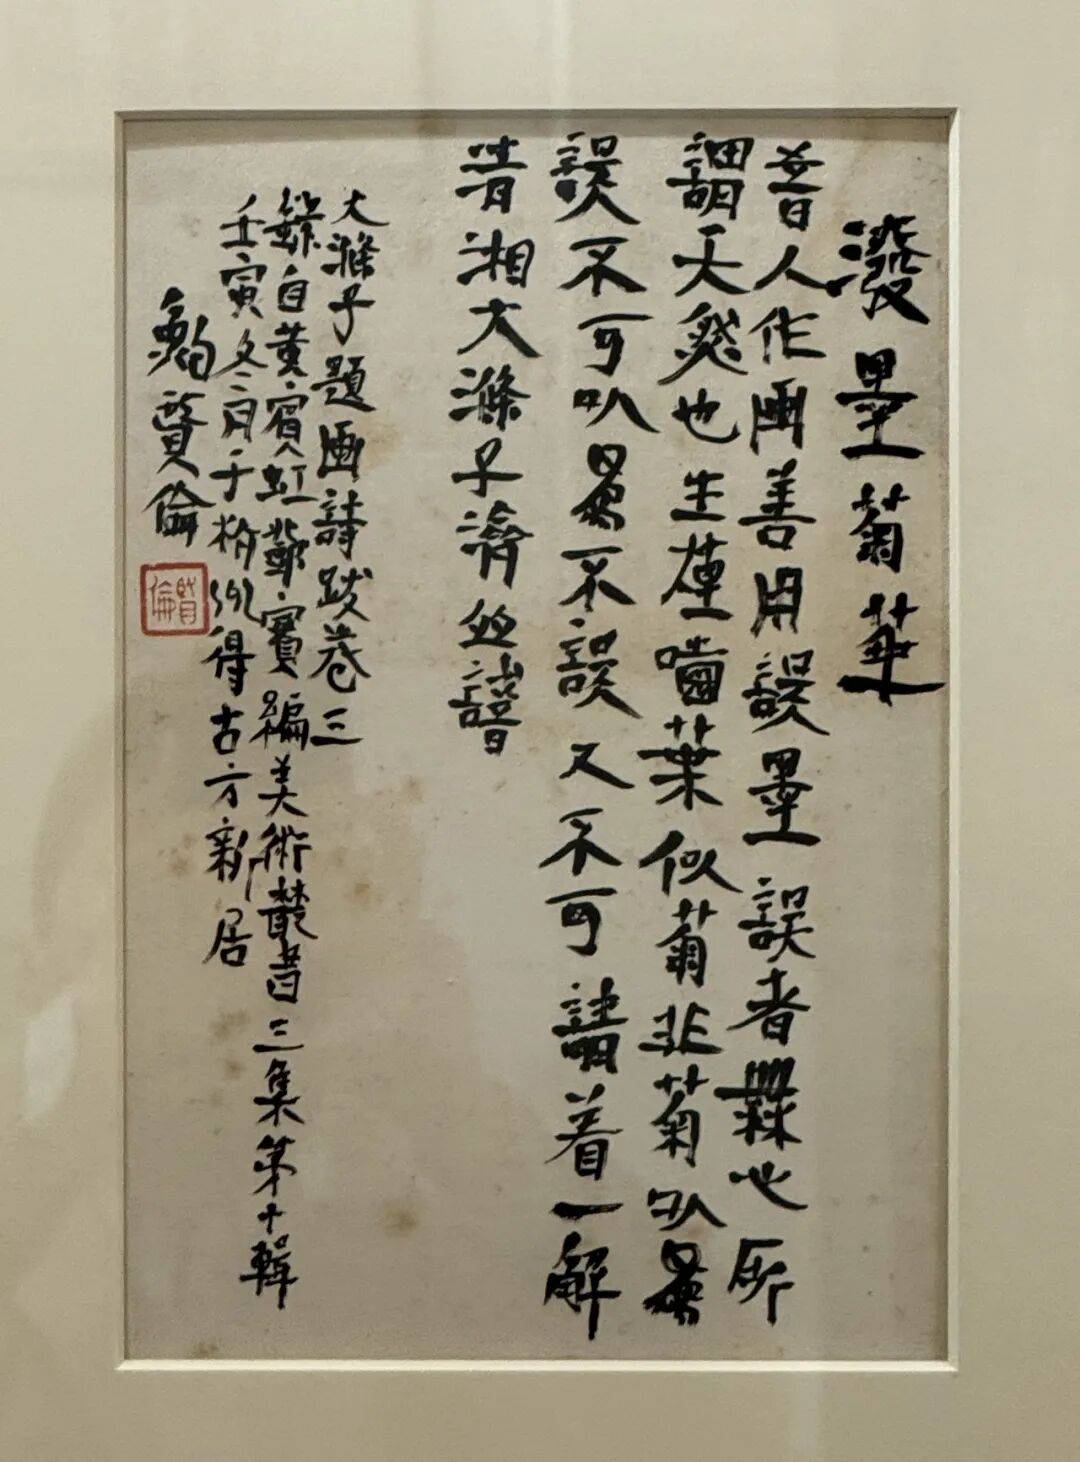 潑墨菊華
昔人作画善用誤墨誤者無心所
謂天然也生薑嚙葉似菊非菊以為
誤不可以為不誤又不可請着一解
清湘大滌子濟並識
大滌子題画詩跋卷三
錄自黃賓虹鄧實編美術叢書三集第十輯
壬寅冬月于杭州得古方新居
賛倫